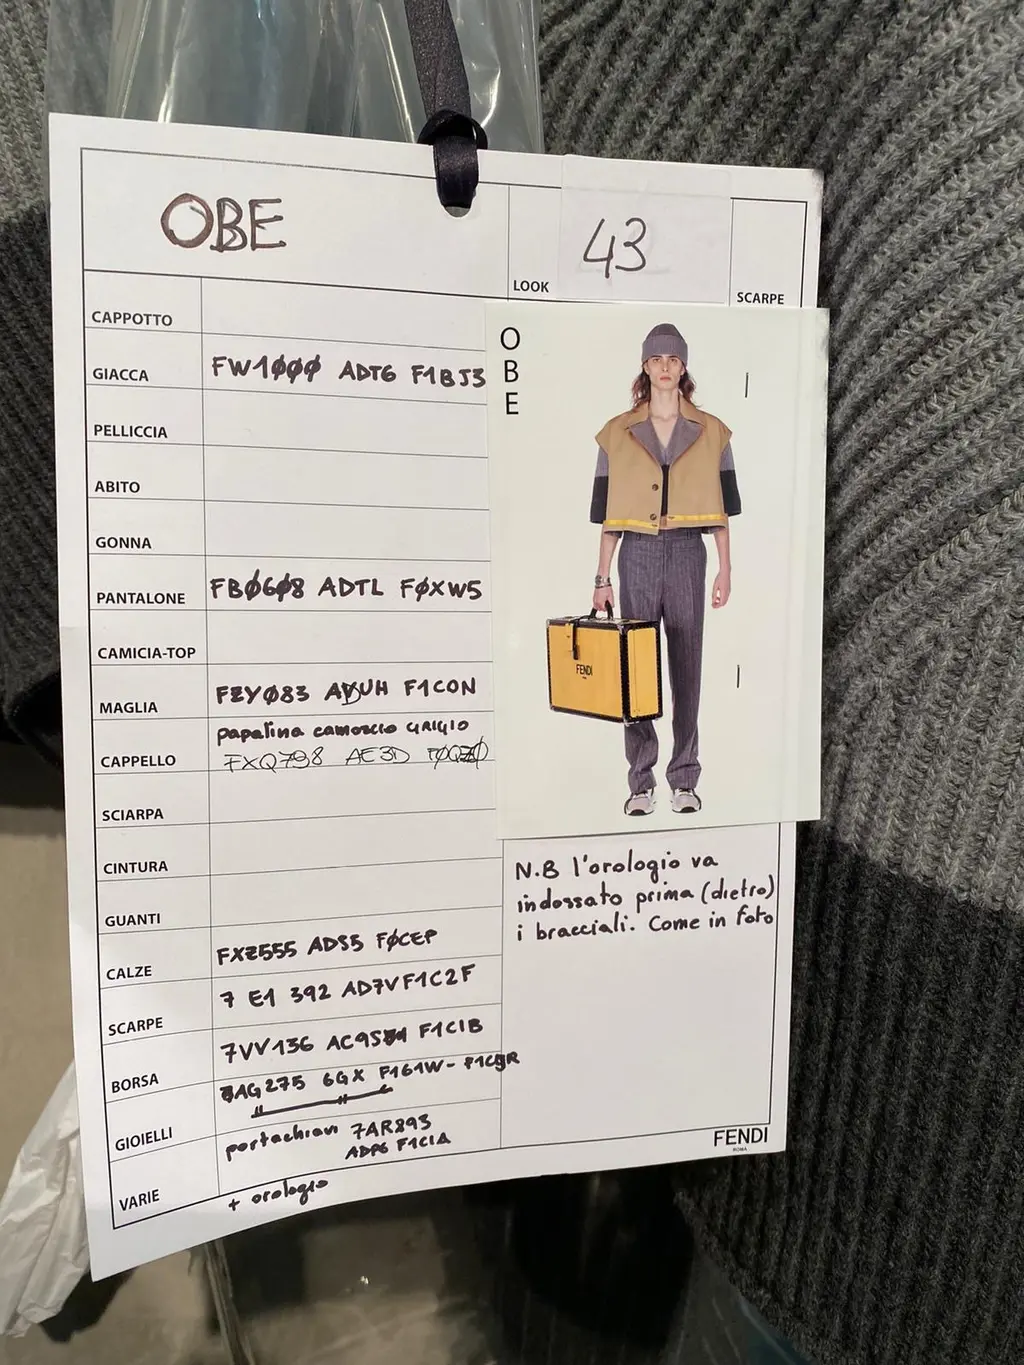 OBE
LOOK
43
SCARPE
CAPPOTTO
GIACCA FW1000 ADT6 F1BJ3
PELLICCIA
ABITO
GONNA
PANTALONE FB0608 ADTL F0XW5
CAMICIA-TOP
MAGLIA FZY083 AYUH F1CON
papalina camoscio GRIGIO
CAPPELLO FXQ798 AE3D
SCIARPA
CINTURA
GUANTI
CALZE FXZ555 ADS5 F0CEP
SCARPE 7E1392 AD7V F1C2F
BORSA 7VV136 F1CIB
GIOIELLI 6GX F161W-
portachiavi 7AR893
ADP6 F1CIA
VARIE + orologio
O
B
E
FENDI
N.B l'orologio va
indossato prima (dietro)
i bracciali. Come in foto
FENDI
ROMA